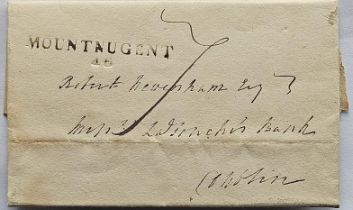 MOUNTNUGENT
46
7
Robert Feversham Esq
Messrs LaTouche's Bank
Dublin